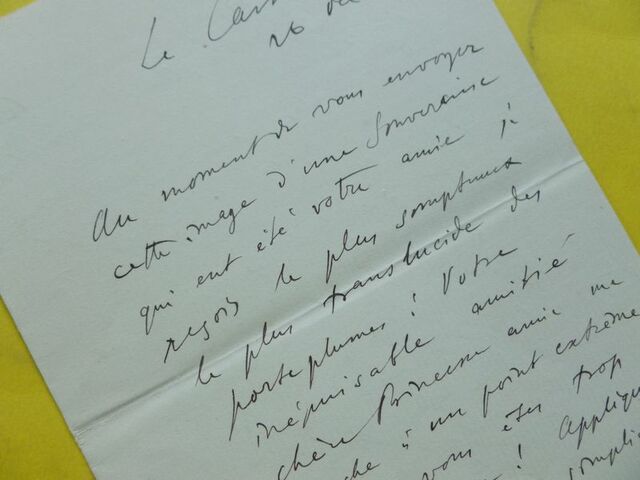 Le Cann
26
Au moment de vous envoyer
cette image d'une Souveraine
qui eut été votre amie je
reçois le plus somptueux
le plus translucide des
porteplumes ! Votre
inépuisable amitié
chère Princesse amie me
che à un point extrême
vous êtes trop
! Appliqu
compli